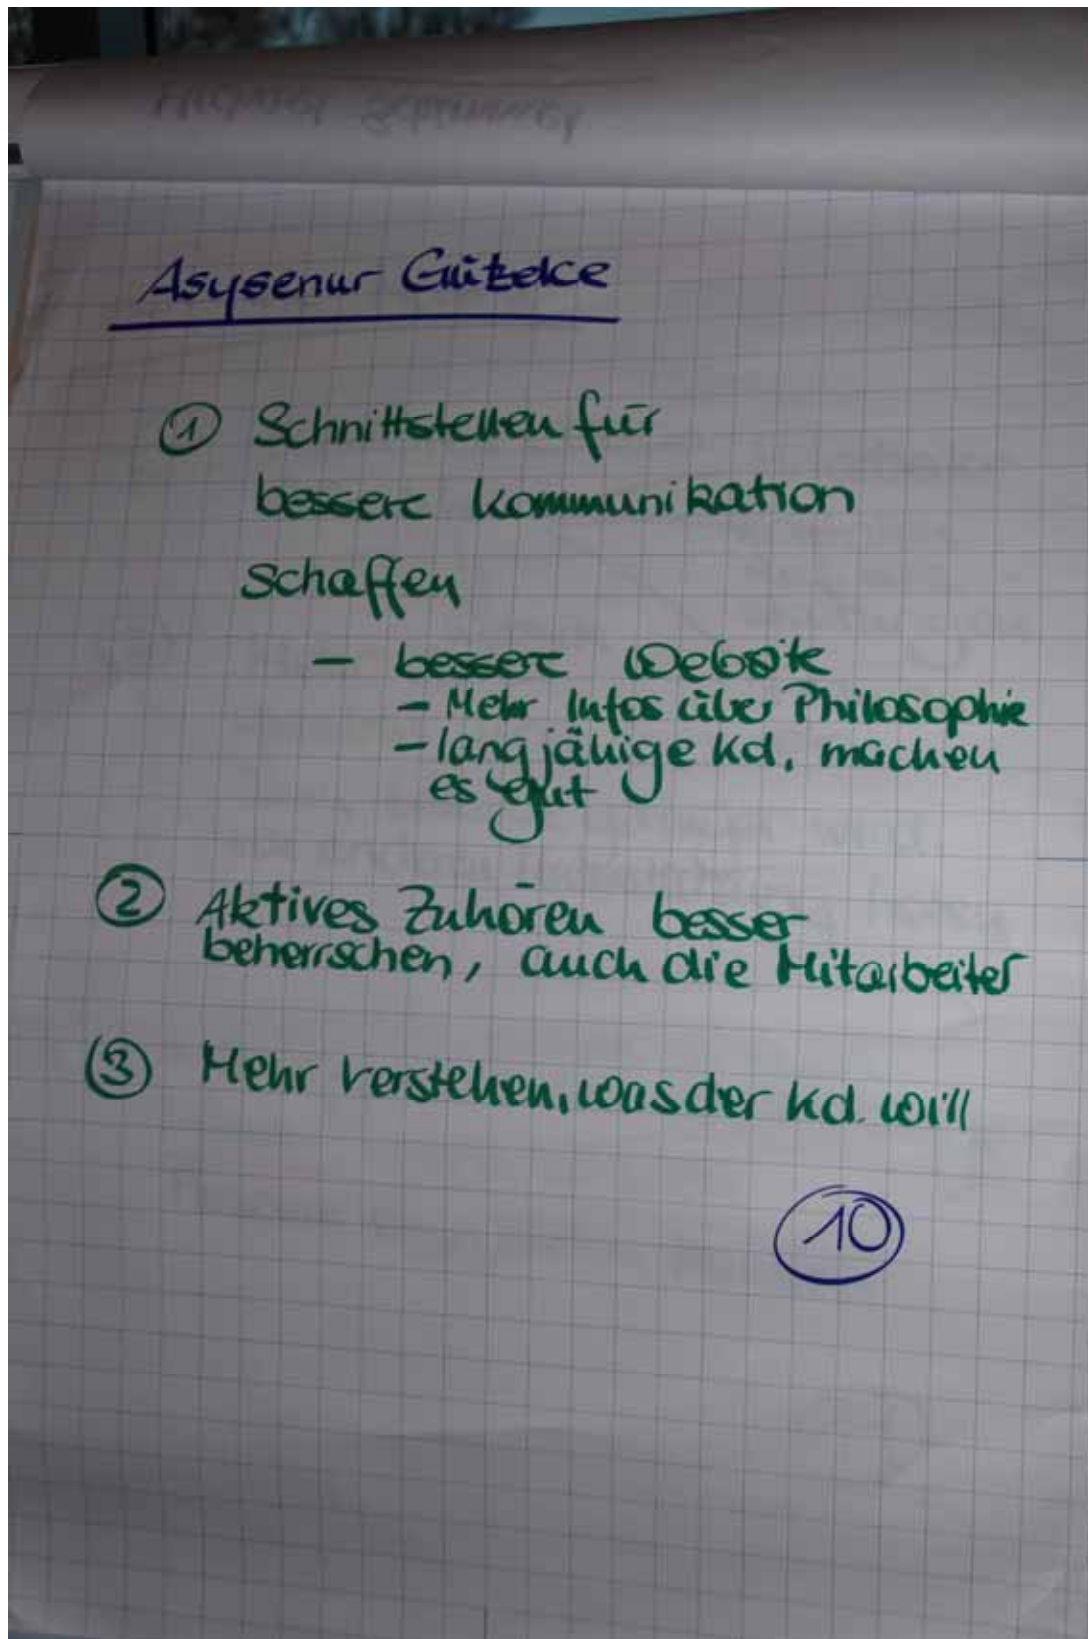 Asysenur
① Schnittstellen für
bessere Kommunikation
schaffen
- bessere Website
- Mehr Infos über Philosophie
- langjährige Kd. machen
es gut
② Aktives Zuhören besser
beherrschen, auch die Mitarbeiter
③ Mehr verstehen, was der Kd. will
10